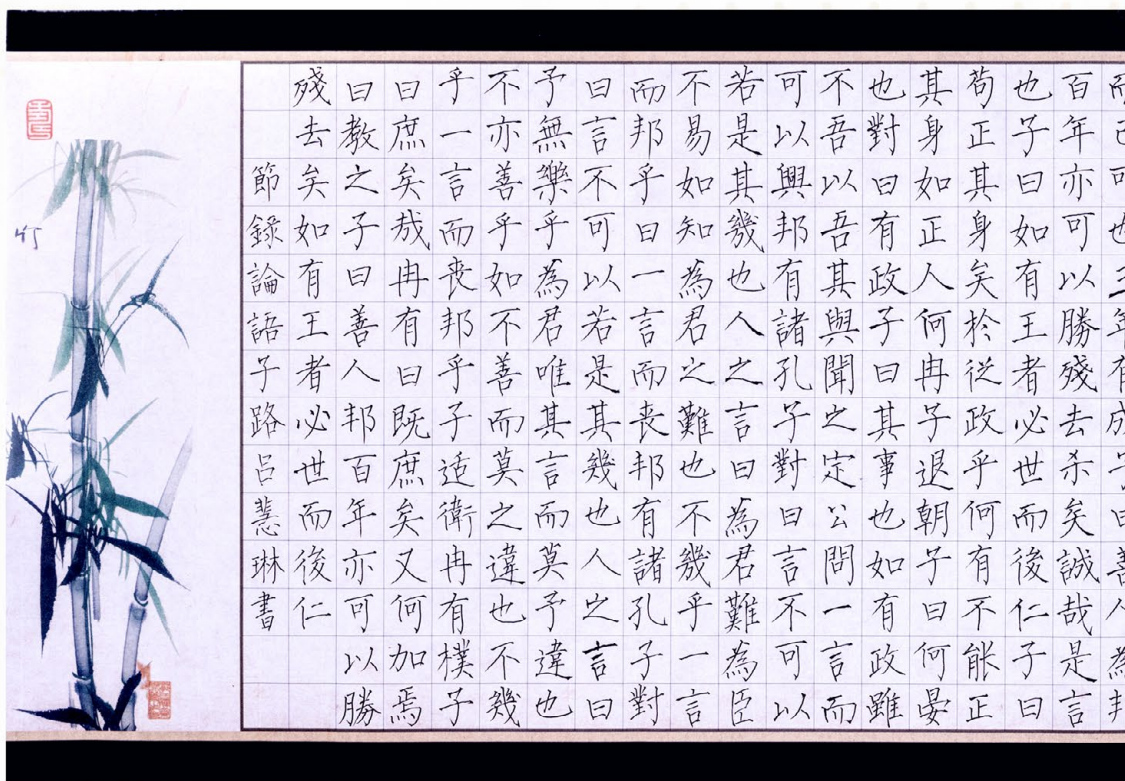 而已可也三年有成子曰善人為邦
百年亦可以勝殘去杀矣誠哉是言
也子曰如有王者必世而後仁子曰
苟正其身矣於從政乎何有不能正
其身如正人何冉子退朝子曰何晏
也對曰有政子曰其事也如有政雖
不吾以吾其與聞之定公問一言而
可以興邦有諸孔子對曰言不可以
若是其幾也人之言曰為君難為臣
不易如知為君之難也不幾乎一言
而邦乎曰一言而丧邦有諸孔子對
曰言不可以若是其幾也人之言曰
予無樂乎為君唯其言而莫予違也
不亦善乎如不善而莫之違也不幾
乎一言而丧邦乎子适衛冉有樸子
曰庶矣哉冉有曰既庶矣又何加焉
曰教之子曰善人邦百年亦可以勝
殘去矣如有王者必世而後仁
節錄論語子路呂慧琳書
45